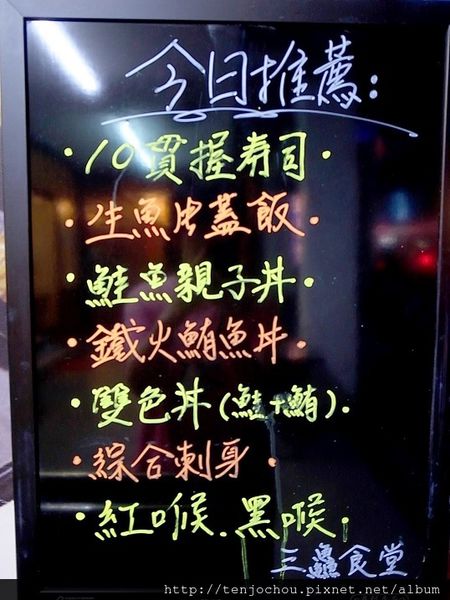 今日推薦:
·10貫握寿司.
·生魚片蓋飯.
·鮭魚親子丼.
·鐵火鮪魚丼.
·雙色丼(鮭+鮪).
·綜合刺身.
·紅喉.黑喉.
三鱻食堂
http://tenjochou.pixnet.net/album